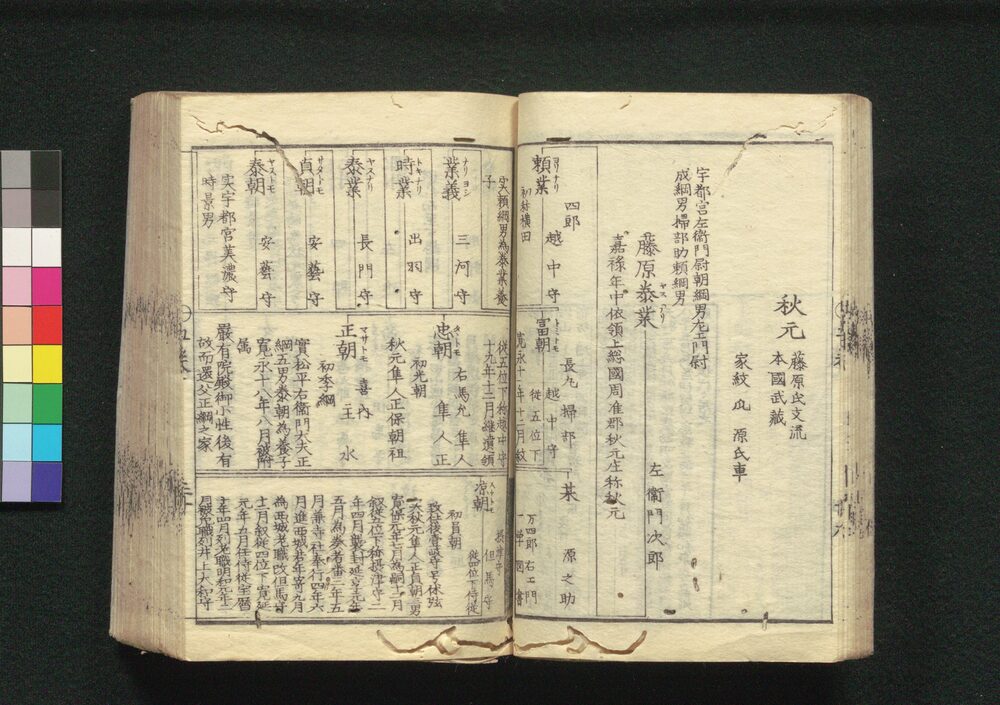 秋元
藤原氏支流
本國武蔵
家紋 瓜 源氏車
宇都宮左衛門尉朝綱男左衛門尉
成綱男掃部助頼綱男
藤原泰業
ヤスナリ
左衛門次郎
嘉禄年中依領上総國周准郡秋元庄称秋元
頼業
ヨリナリ
四郎
越中守
初称横田
実頼綱男為泰業養
子
業義
ナリヨシ
三河守
時業
トキナリ
出羽守
泰業
ヤスナリ
長門守
貞朝
サタトモ
安藝守
泰朝
ヤストモ
安藝守
実宇都宮美濃守
時景男
富朝
トミトモ
長九
掃部
越中守
従五位下
寛永十一年十二月叙
従五位下称越中守
十九年十二月継遺領
忠朝
タヽトモ
右馬允
隼人
隼人正
初光朝
秋元隼人正保朝祖
正朝
マサトモ
喜内
主水
初季綱
實松平右衛門大夫正
綱五男泰朝為養子
寛永十八年八月被附
属
嚴有院殿御小性後有
故而還父正綱之家
某
源之助
万四郎
右エ門
一學
図書
凉朝
スケトモ
摂津守
但馬守
従四位下侍従
初員朝
致仕後貴號号休弦
実秋元隼人正貞朝三男
寛保元年七月為嗣十二月
叙従五位下称摂津守二
年四月襲封延享元年
五月為奏者番三年五
月兼寺社奉行四年六
月進西城若年寄九月
為西城老職改但馬守
十二月叙従四位下寛延
元年九月任侍従宝暦
十年四月列老職明和元年三
月辞職列井上大和守